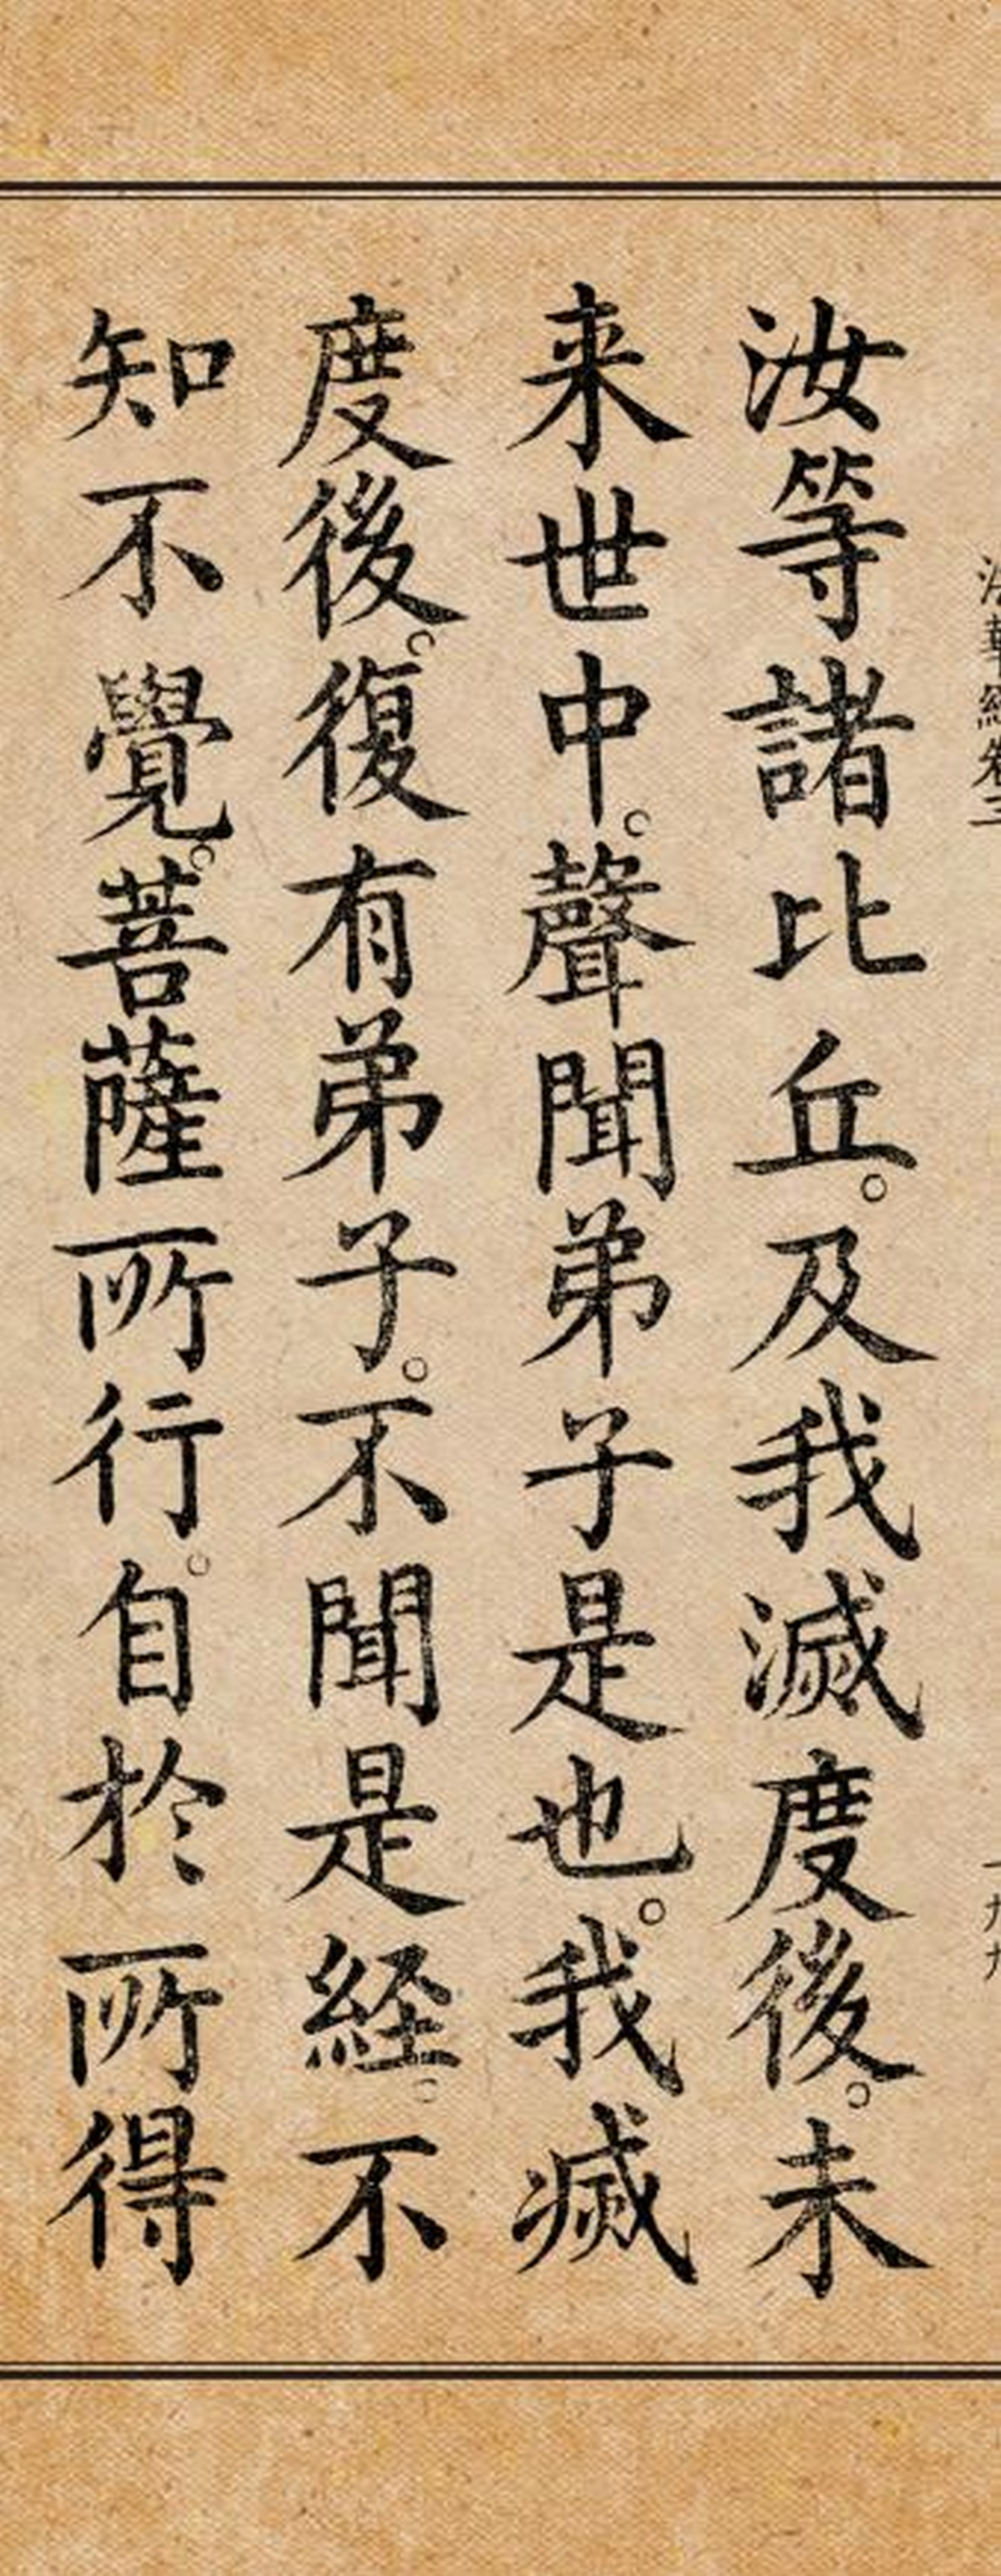 法華經卷三 一九九
汝等諸比丘。及我滅度後。未
来世中。聲聞弟子是也。我滅
度後。復有弟子。不聞是経。不
知不覺。菩薩所行。自於所得